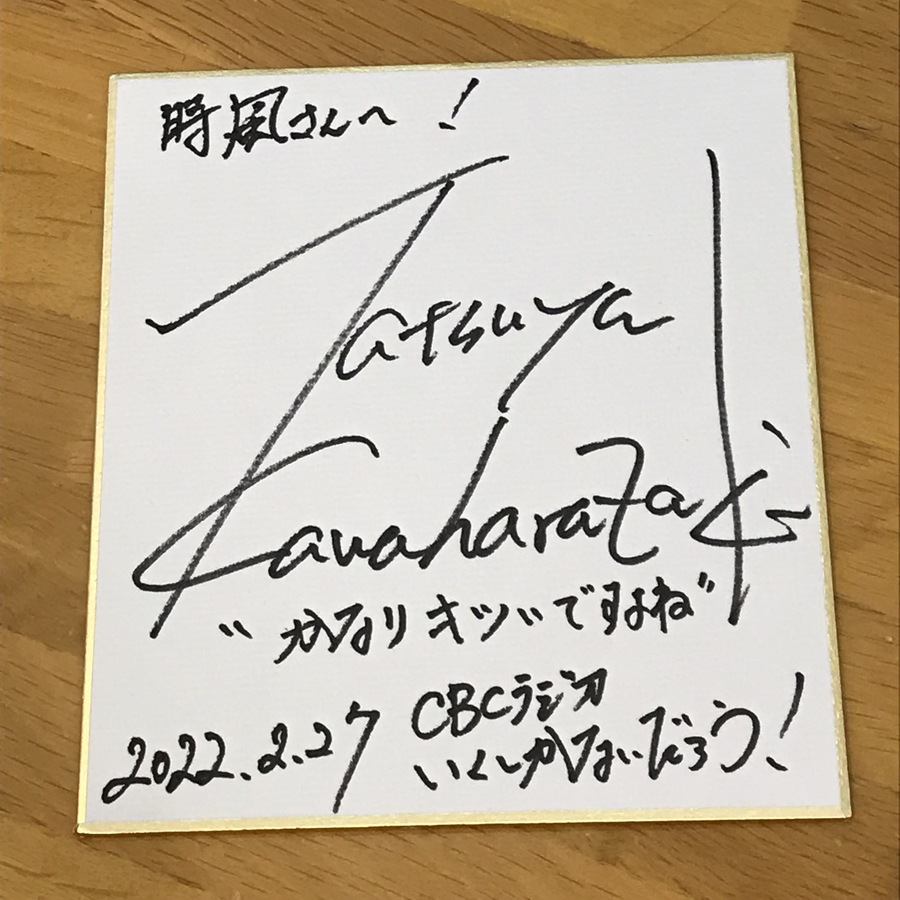 時風さんへ!
Tatsuya
Kawaharazaki
"かなりキツいですよね"
2022.2.27
CBCラジオ
いくしかないだろう!